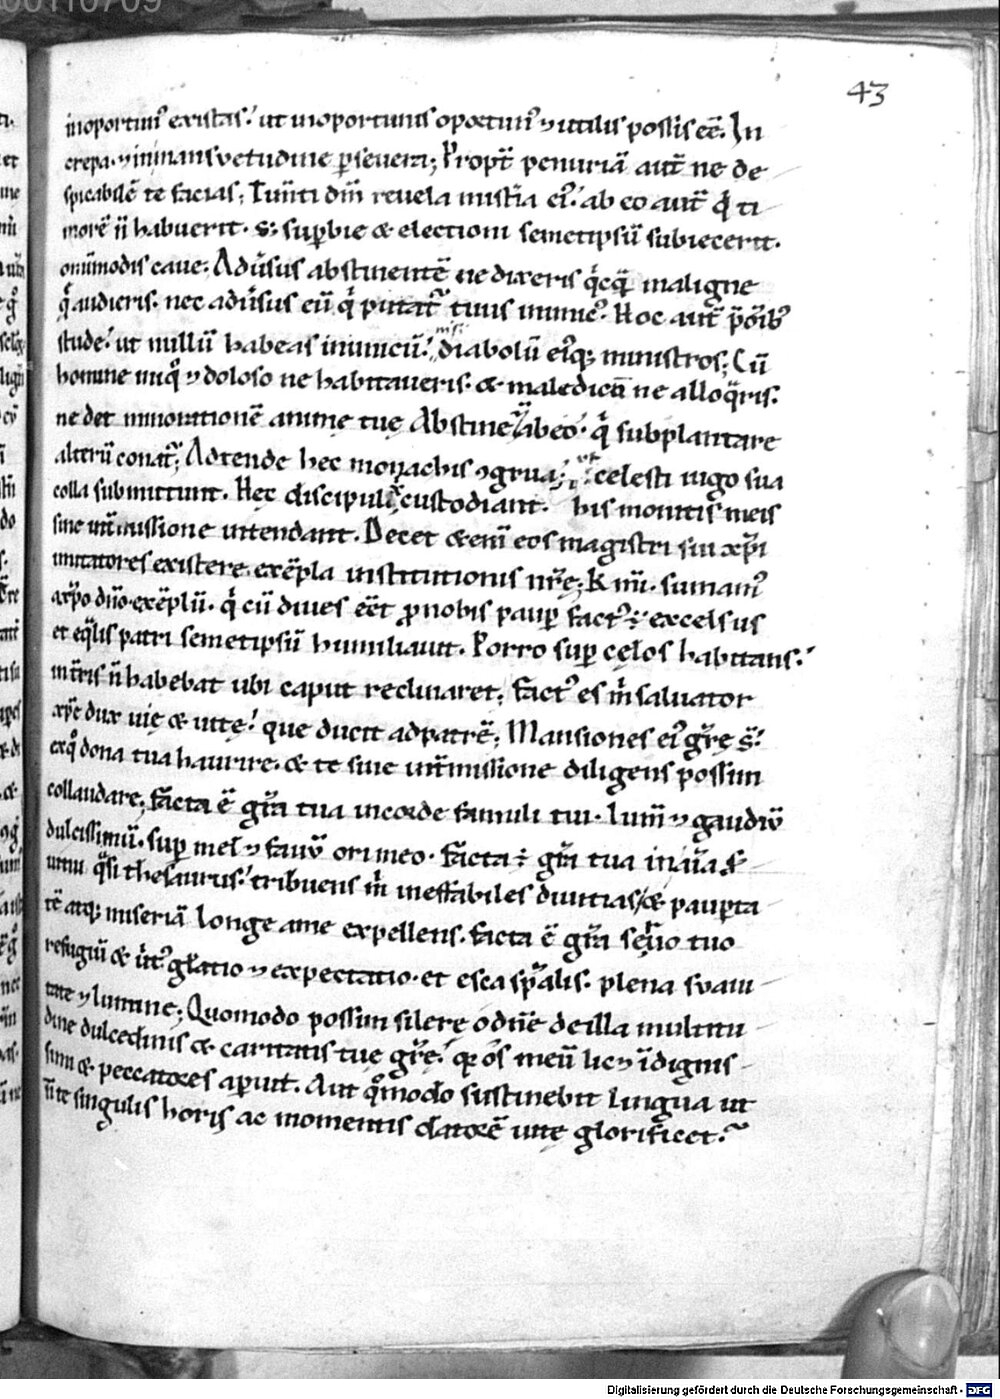 00110709
43
inoportun᾽ existas! ut inoportunis oportun᾽ ⁊ utilis possis eē. In
crepa. ⁊ in mansuetudine ꝑseuera; Propt̄ penuriā aut̄ ne de
spicabilē te facias; Tim̄ti dn̄m reuela mist̄ia ei᾽. ab eo aut̄ q̄ ti
morē n̄ habuerit. s; suꝑbie & electioni semetipsū subiecerit.
omīmodis caue; Adūsus abstinentē ne dixeris q̄cq̄ maligne
q̄ audieris. nec adūsus eū q̄ putat᷑ tuus inimic᾽. Hoc aut̄ p̄ oīb᾽
stude! ut nullū habeas inimicū! nisi diabolū ei᾽q; ministros; Cū
homine iniq̊ ⁊ doloso ne habitaueris. & maledicū ne alloq̄ris.
ne det minorationē anime tuę Abstine ū ab eo. q̄ subplantare
alterū conat᷑; Adtende hec monachis ꝯgrua; ut celesti iugo sua
colla submittunt. Hec discipuli custodiant. his monitis meis
sine int̄missione intendant. Decet & eni᷑ eos magistri sui xp̄i
imitatores existere. exēpla institutionis nr̄ę. K mi. sumam᾽
a xp̄o dn̄o exēplū. q̄ cū diues eēt ꝓ nobis pauꝑ fact᾽ ÷ excelsus
et eq̄lis patri semetipsū humiliauit. Porro suꝑ cęlos habitans!
in t̄ris n̄ habebat ubi caput reclinaret. fact᾽ es m̄ saluator
xp̄e dux uię & uitę! que ducit ad patrē; Mansiones ei᾽ gr̄ę s̄!
ex q̊ dona tua haurire. & te sine int̄missione diligens possim
collaudare; facta ē gr̄a tua in corde famuli tui. lum̄ ⁊ gaudiū
dulcissimū. suꝑ mel ⁊ fauū ori meo. facta ÷ gr̄a tua in aīa s̄
uitui q̄si thesaurus! tribuens m̄ ineffabiles diuitias / & pauꝑta
tē atq; miseriā longe a me expellens. facta ē gr̄a seruo tuo
refugiū & uirt᾽ gl̄atio ⁊ expectatio. et esca sp̄alis. plena suaui
tate ⁊ lumine; Quomodo possim silere o dn̄e de illa multitu
dine dulcedinis & caritatis tuę gr̄ę! q̄ os meū lic⁊ īdignis
sim & peccatores aꝑuit. Aut q̊modo sustinebit lingua ut
n̄ te singulis horis ac momentis datorē uitę glorificet.
Digitalisierung gefördert durch die Deutsche Forschungsgemeinschaft - DFG